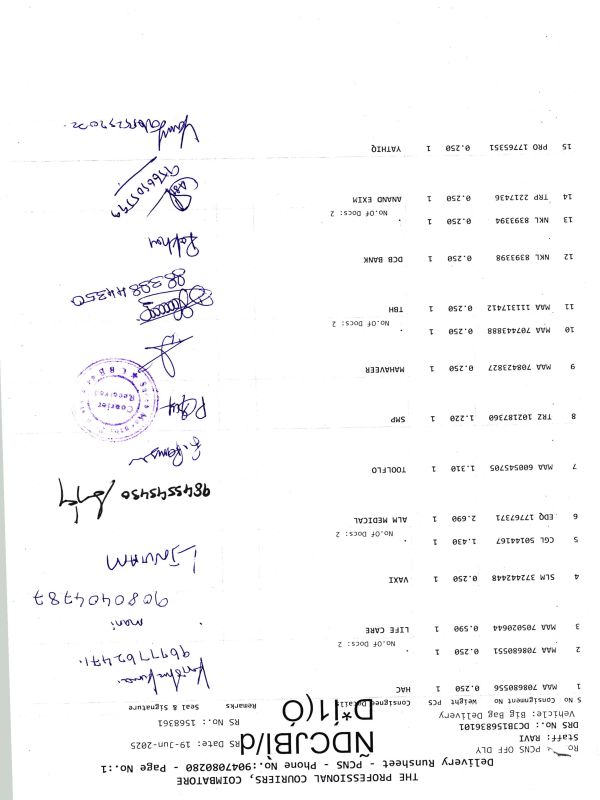 THE PROFESSIONAL COURIERS, COIMBATORE
Delivery Runsheet - PCNS - Phone No.:9047080280 - Page No.:1
PCNS OFF DLY
Staff: RAVI
DRS No.: DCJB156836101
Vehicle: Big Bag Delivery
ÑDCJBÌ/d
D*i1(Ó
RS Date: 19-Jun-2025
RS No.: 1568361
S No Consignment No Weight PCS Consignee Details Remarks Seal & Signature
1 MAA 708680556 0.250 1 HAC
2 MAA 708680551 0.250 1 .
No.Of Docs: 2
9697762471.
3 MAA 705020644 0.590 1 LIFE CARE
mani
9080404787
4 SLM 372442448 0.250 1 VAXI
5 CGL 50144167 1.430 1 .
No.Of Docs: 2
6 EDQ 17767371 2.690 1 ALM MEDICAL
9845545450
7 MAA 600545705 1.310 1 TOOLFLO
8 TRZ 102187360 1.220 1 SMP
Courier
Received
9 MAA 708423827 0.250 1 MAHAVEER
10 MAA 707443888 0.250 1 .
No.Of Docs: 2
11 MAA 111317412 0.250 1 TBH
12 NKL 8393398 0.250 1 DCB BANK
13 NKL 8393394 0.250 1 .
No.Of Docs: 2
14 TRP 2217436 0.250 1 ANAND EXIM
15 PRO 17765351 0.250 1 YATHIQ